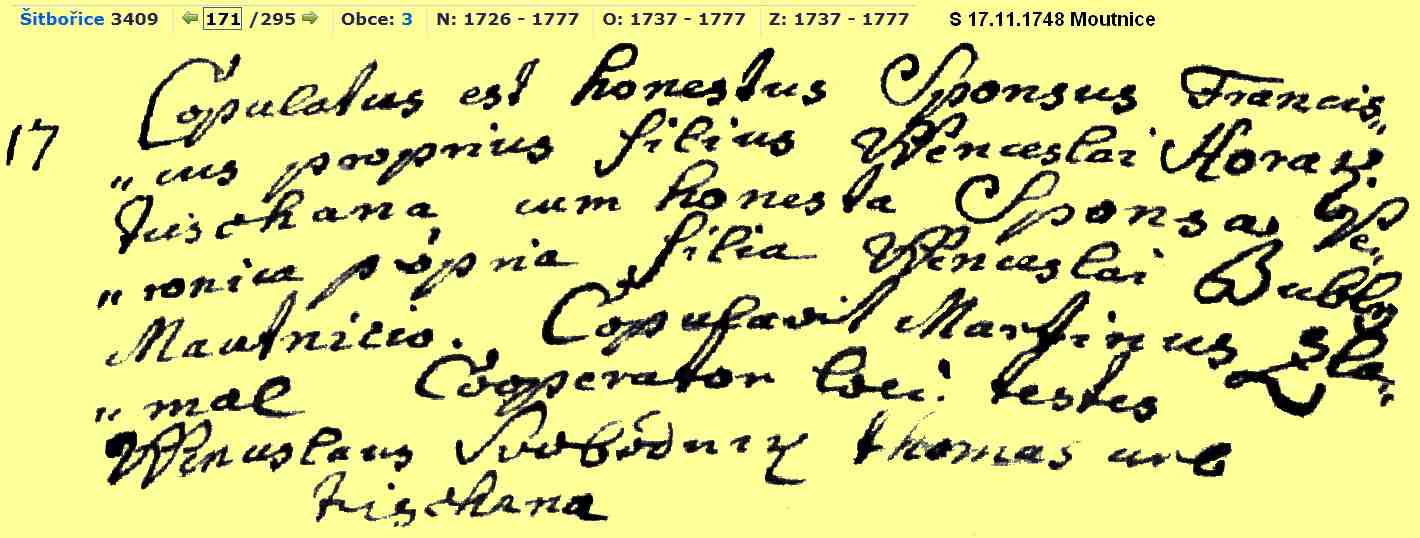 Šitbořice 3409 171 /295 Obce: 3 N: 1726 - 1777 O: 1737 - 1777 Z: 1737 - 1777 S 17.11.1748 Moutnice
Copulatus est honestus Sponsus Francis„
17 „cus proprius filius Wenceslai Horak
tischana, cum honesta Sponsa Ve„
„ronica propria filia Wenceslai Bubln
Mautnicio. Copulavit Martinus Sla„
„mal Cooperator loci: testes
Wenceslaus Svobodnik thomas
tischana